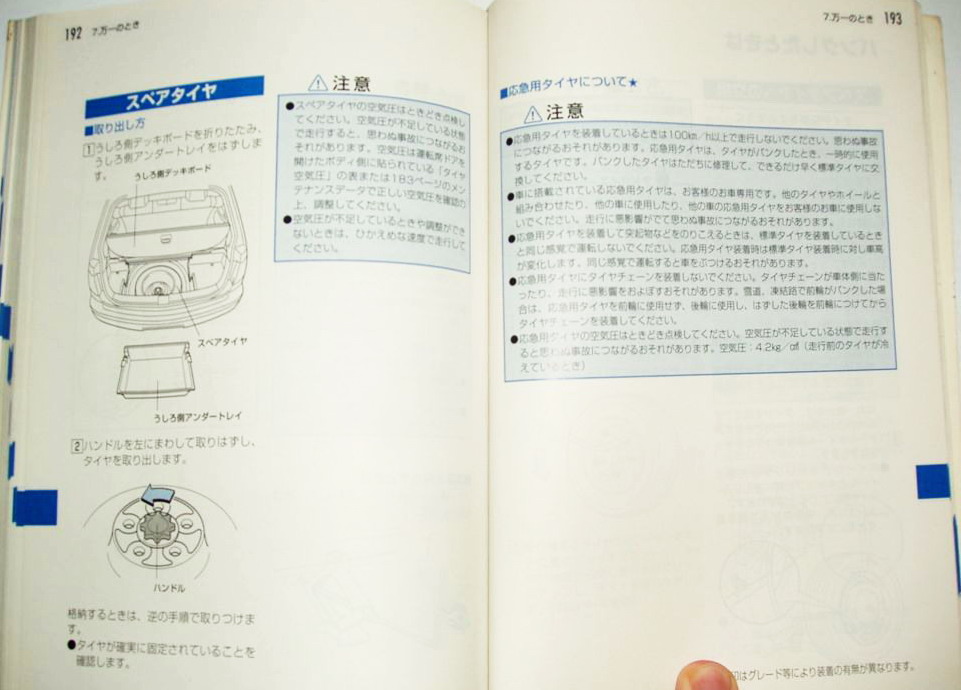 192 7.万一のとき
スペアタイヤ
■取り出し方
1 うしろ側デッキボードを折りたたみ、
うしろ側アンダートレイをはずしま
す。
うしろ側デッキボード
スペアタイヤ
うしろ側アンダートレイ
2 ハンドルを左にまわして取りはずし、
タイヤを取り出します。
ハンドル
格納するときは、逆の手順で取りつけま
す。
●タイヤが確実に固定されていることを
確認します。
注意
●スペアタイヤの空気圧はときどき点検し
てください。空気圧が不足している状態
で走行すると、思わぬ事故につながるお
それがあります。空気圧は運転席ドアを
開けたボディ側に貼られている「タイヤ
空気圧」の表または183ページのメン
テナンスデータで正しい空気圧を確認の
上、調整してください。
●空気圧が不足しているときや調整ができ
ないときは、ひかえめな速度で走行して
ください。
7.万一のとき 193
■応急用タイヤについて★
注意
●応急用タイヤを装着しているときは100km/h以上で走行しないでください。思わぬ事故
につながるおそれがあります。応急用タイヤは、タイヤがパンクしたとき、一時的に使用
するタイヤです。パンクしたタイヤはただちに修理して、できるだけ早く標準タイヤに交
換してください。
●車に搭載されている応急用タイヤは、お客様のお車専用です。他のタイヤやホイールと
組み合わせたり、他の車に使用したり、他の車の応急用タイヤをお客様のお車に使用しな
いでください。走行に悪影響がでて思わぬ事故につながるおそれがあります。
●応急用タイヤを装着して突起物などをのりこえるときは、標準タイヤを装着しているとき
と同じ感覚で運転しないでください。応急用タイヤ装着時は標準タイヤ装着時に対し車高
が変化します。同じ感覚で運転すると車をぶつけるおそれがあります。
●応急用タイヤにタイヤチェーンを装着しないでください。タイヤチェーンが車体側に当た
ったり、走行に悪影響をおよぼすおそれがあります。雪道、凍結路で前輪がパンクした場
合は、応急用タイヤを前輪に使用せず、後輪に使用し、はずした後輪を前輪につけてから
タイヤチェーンを装着してください。
●応急用タイヤの空気圧はときどき点検してください。空気圧が不足している状態で走行す
ると思わぬ事故につながるおそれがあります。空気圧：4.2kg/c㎡（走行前のタイヤが冷
えているとき）
はグレード等により装着の有無が異なります。